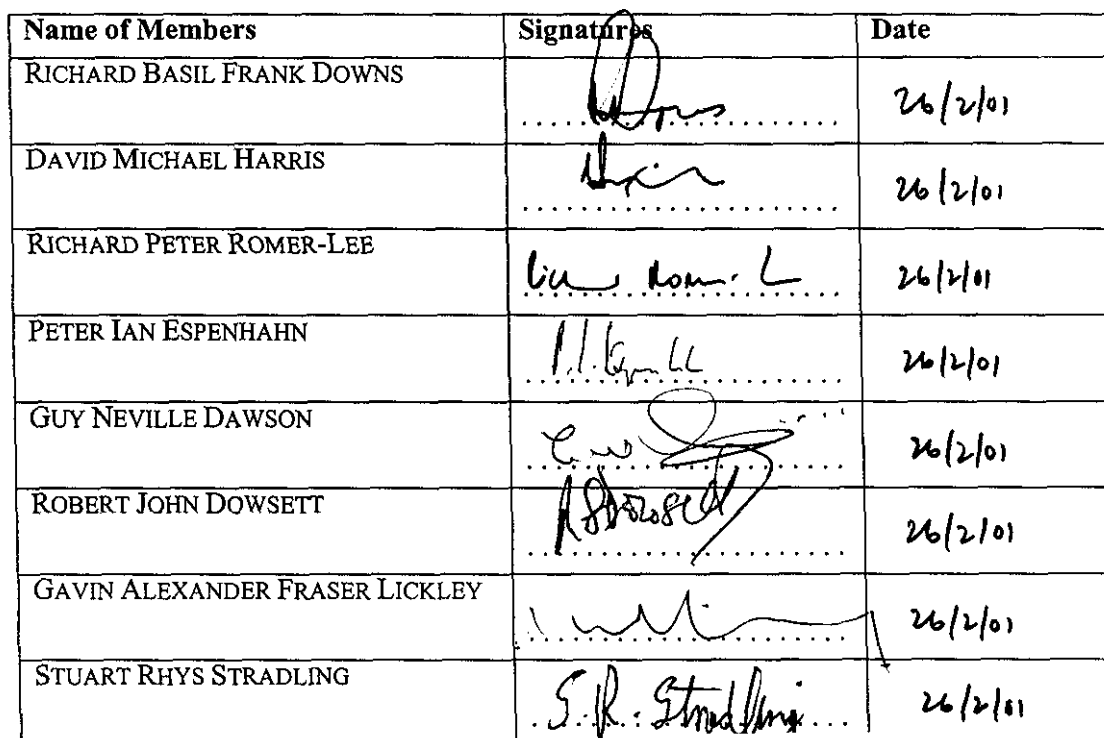 Name of Members Signatures Date
RICHARD BASIL FRANK DOWNS 26/2/01
DAVID MICHAEL HARRIS 26/2/01
RICHARD PETER ROMER-LEE 26/2/01
PETER IAN ESPENHAHN 26/2/01
GUY NEVILLE DAWSON 26/2/01
ROBERT JOHN DOWSETT 26/2/01
GAVIN ALEXANDER FRASER LICKLEY 26/2/01
STUART RHYS STRADLING S.R. Stradling 26/2/01